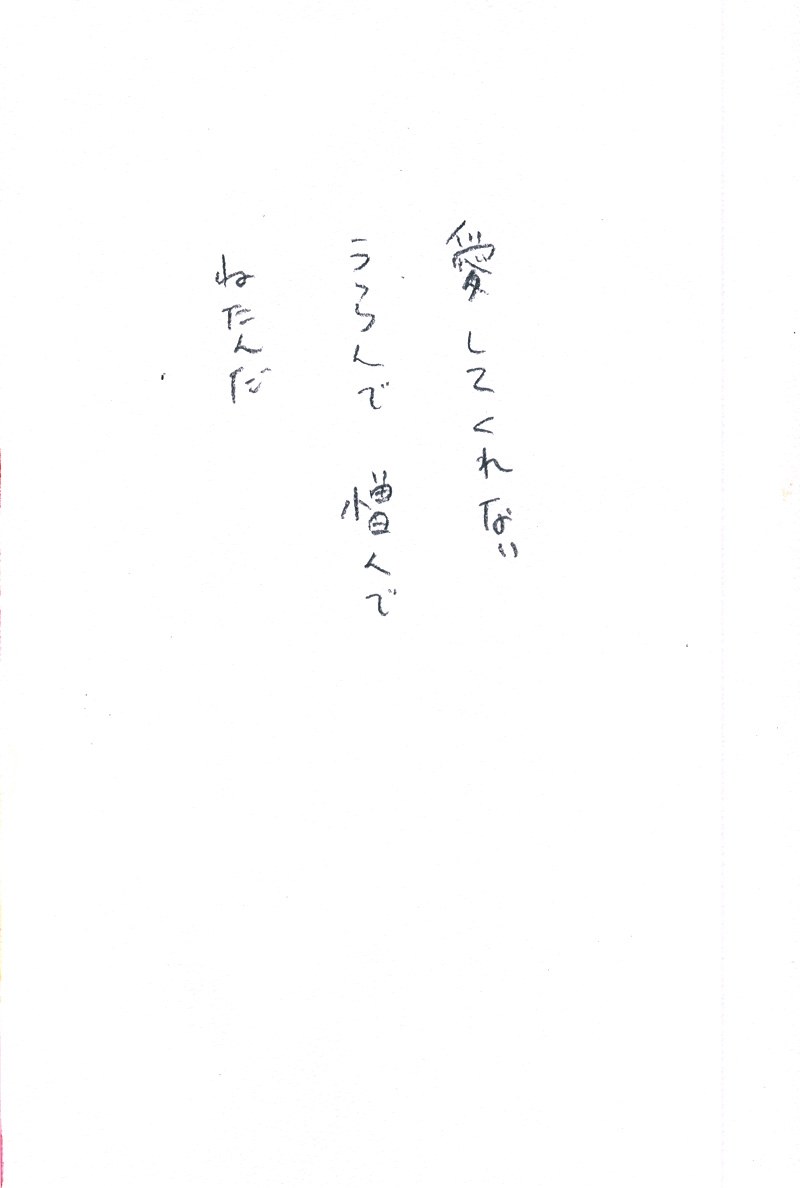 愛してくれない
うらんで 憎んで
ねたんだ